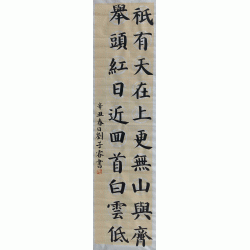 祇有天在上更無山與齊
舉頭紅日近回首白雲低
辛丑春日劉子書